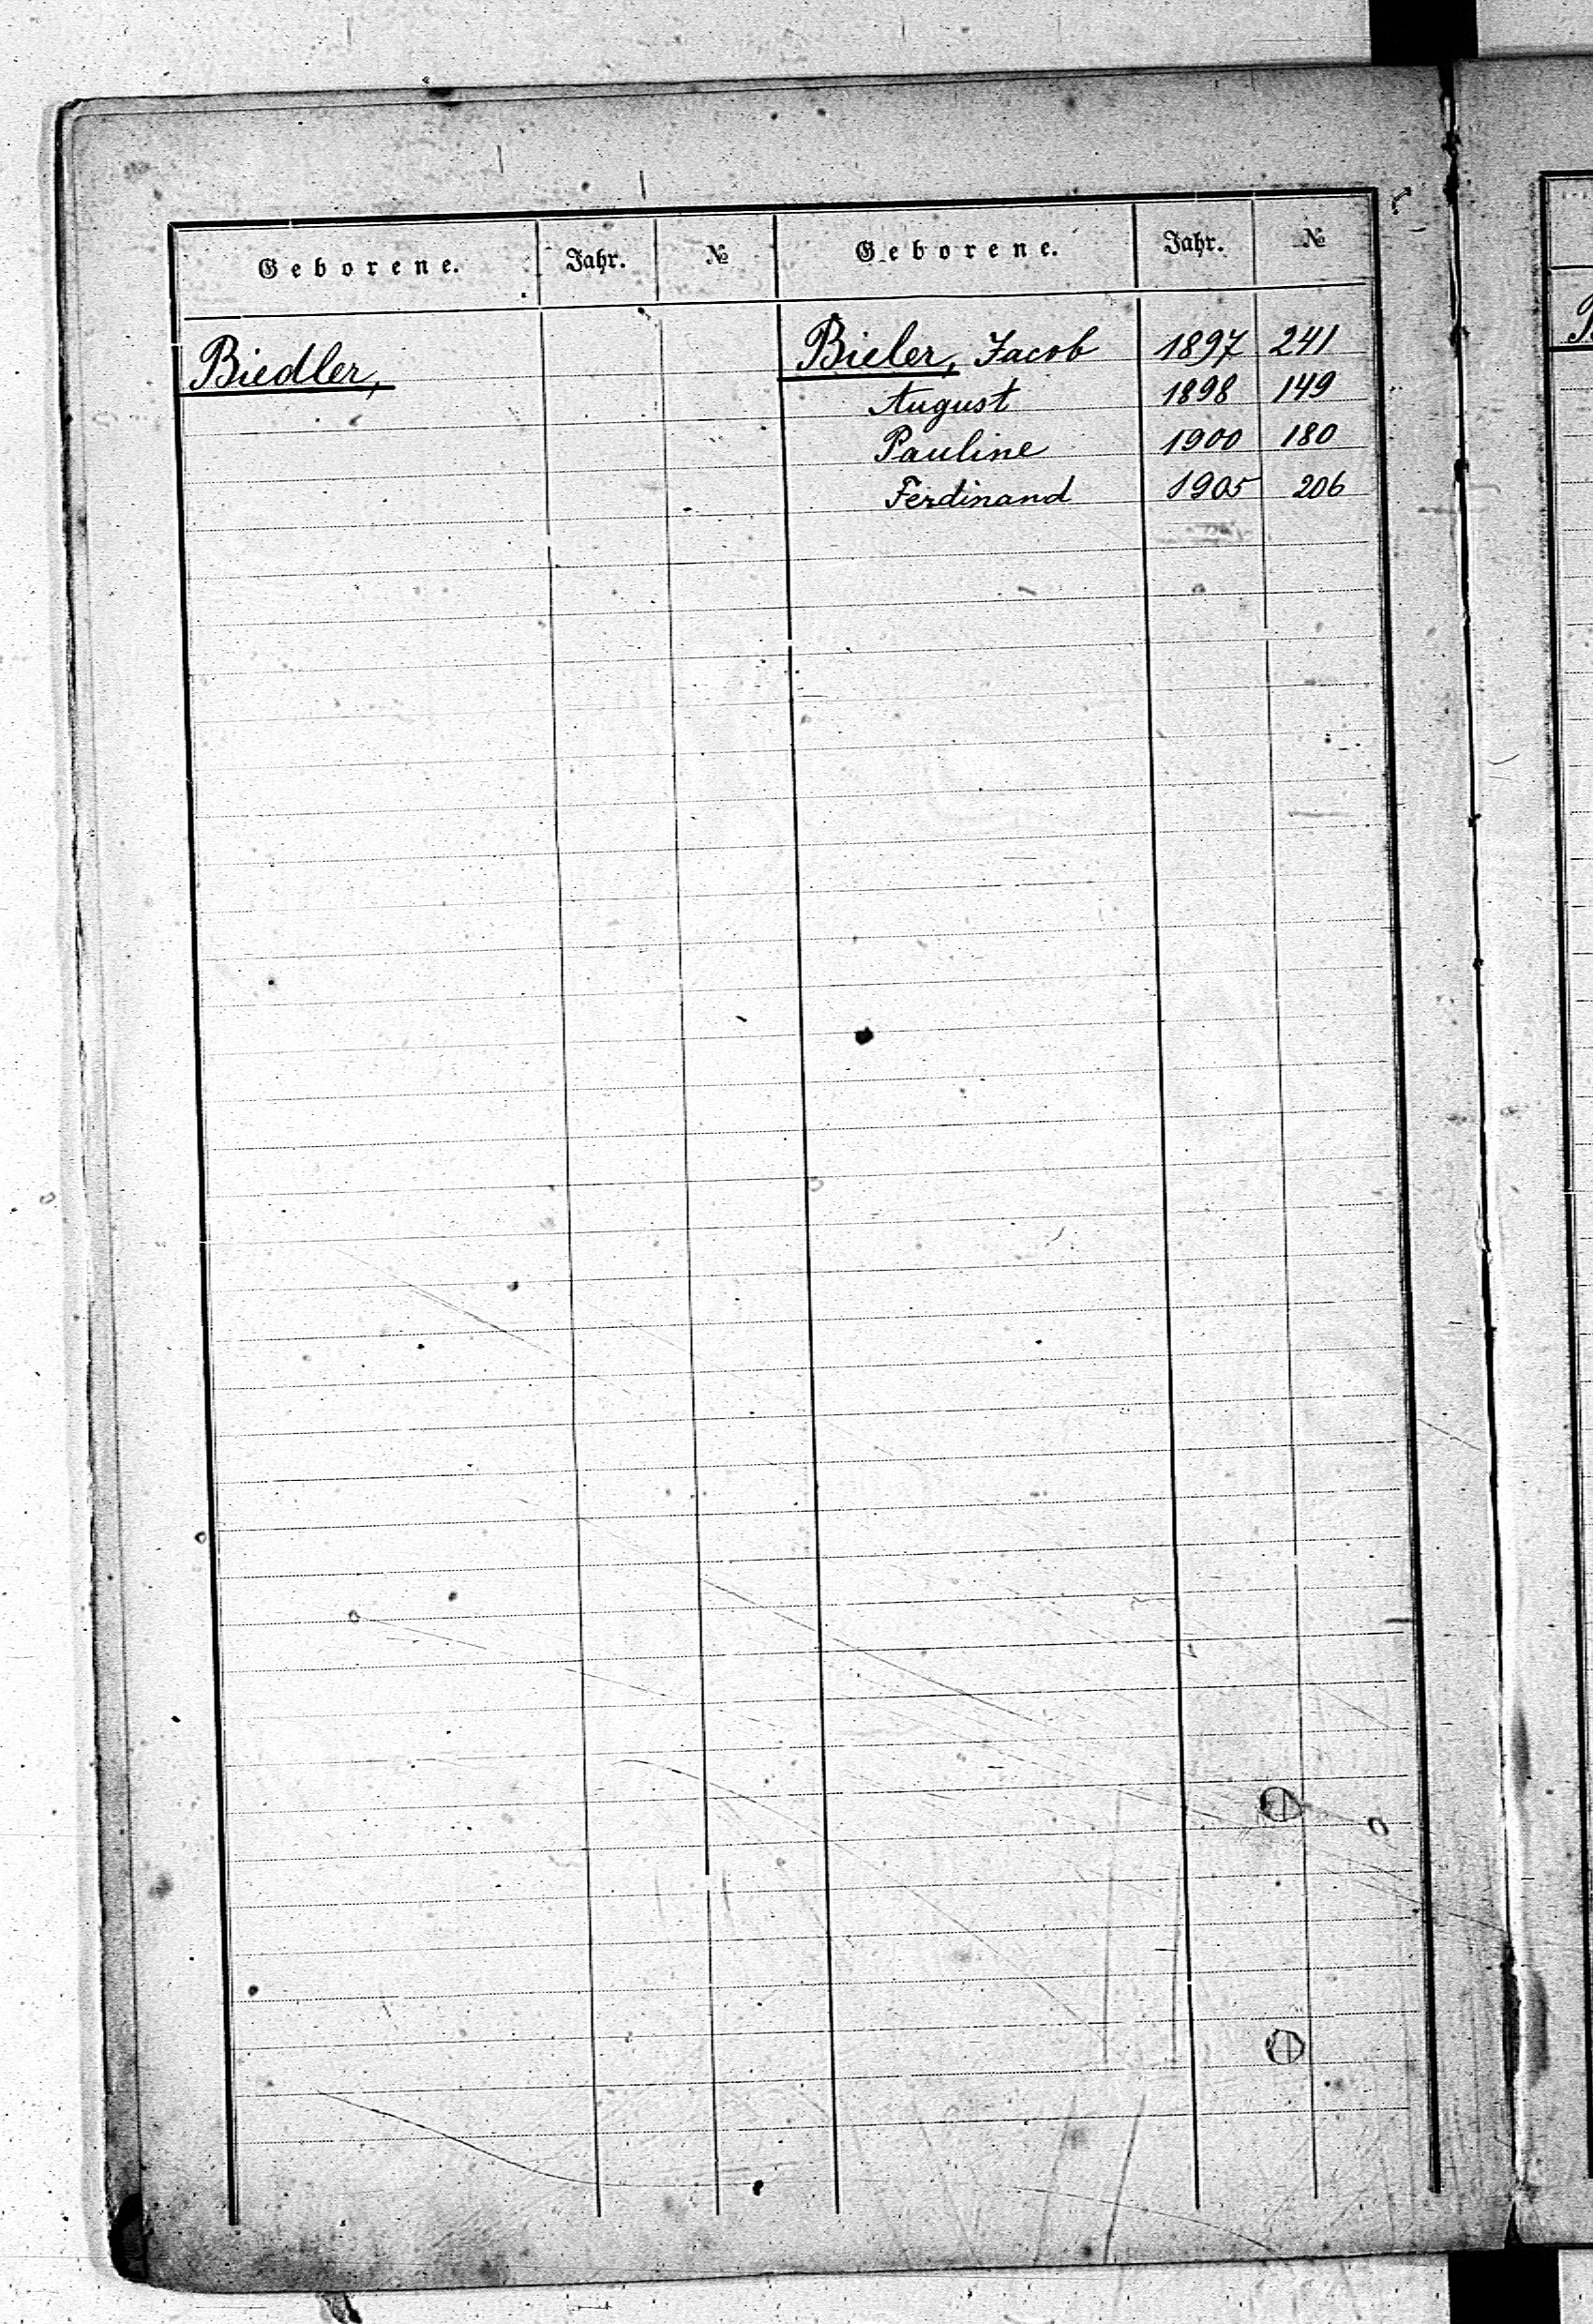 Geborene. Jahr. № Geborene. Jahr. №
Biedler, Bieler, Jacob 1897 241
August 1898 149
Pauline 1900 180
Ferdinand 1905 206